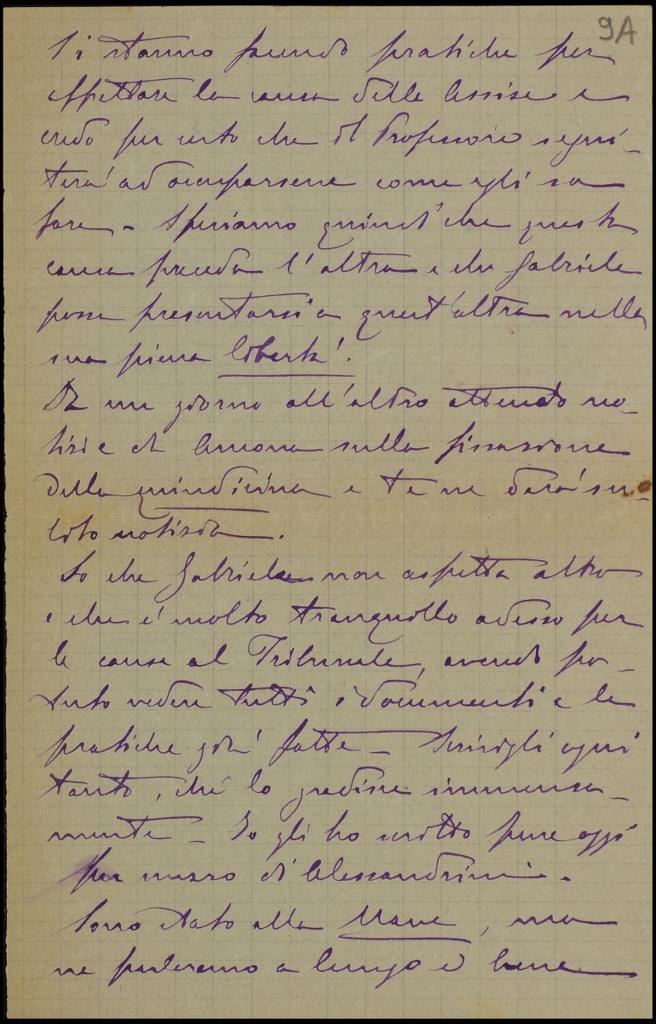 9A
Si stanno facendo pratiche per
affrettare la causa delle Assise e
credo per certo che il Professore segui-
terà ad occuparsene come egli sa
fare - Speriamo quindi che questa
causa preceda l'altra e che Gabriele
possa presentarsi a quest'altra nella
sua piena libertà.
Da un giorno all'altro attendo no-
tizie di Ancona sulla fissazione
della quindicina e te ne darò su-
bito notizia.
So che Gabriele non aspetta altro
e che è molto tranquillo adesso per
le cause al Tribunale, avendo po-
tuto vedere tutti i documenti e le
pratiche già fatte - Scrivigli ogni
tanto, ché lo gradisce immensa-
mente - Io gli ho scritto pure oggi
per mezzo di Alessandrini -
Sono stato alla Nave, ma
ne parleremo a lungo e bene